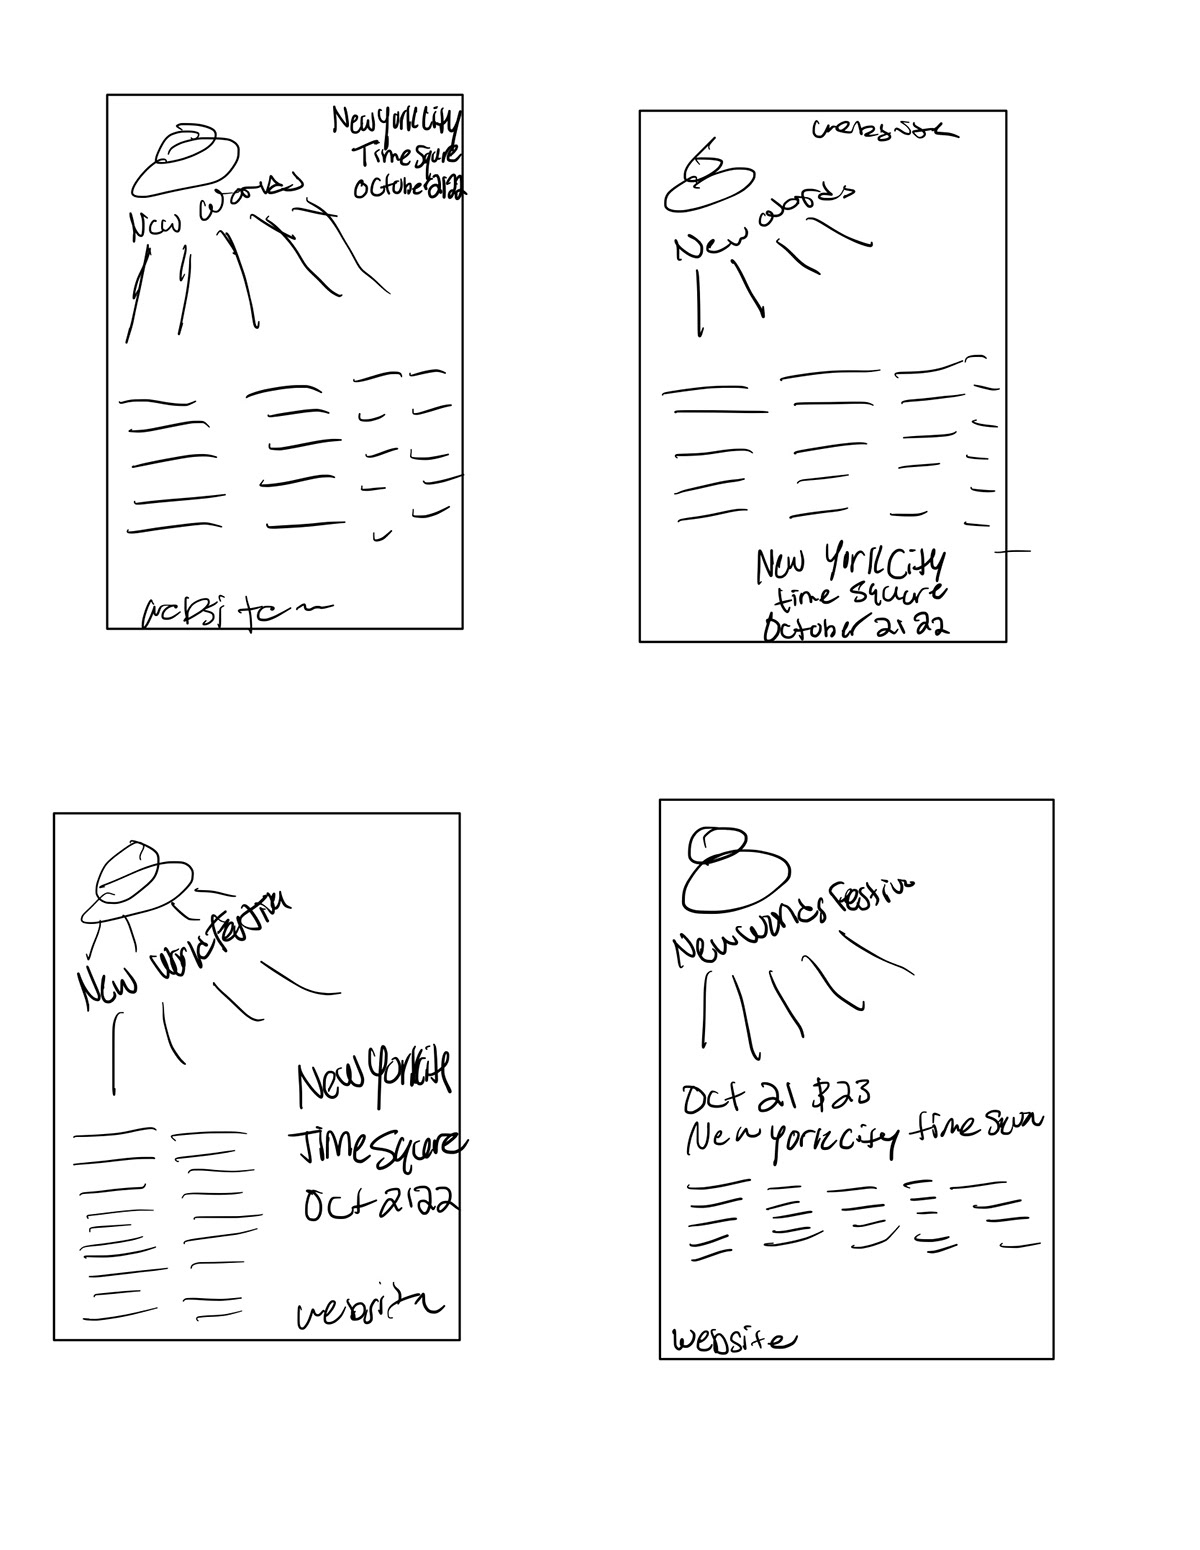 New York City
Time Squre
October 21 22
New Worlds
website
website
New Words
New York City
time square
October 21 22
New World Festiva
New York Cit
Time Square
Oct 21 22
website
New Worlds Festiv
Oct 21 $23
New York City time
website